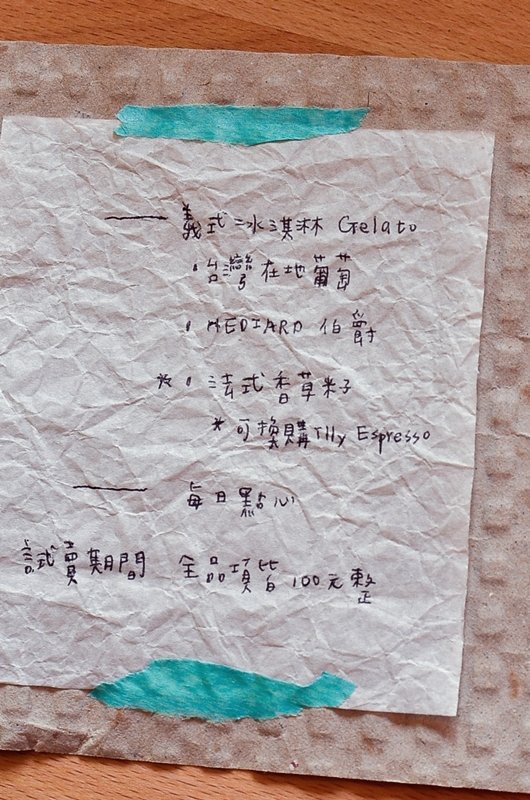 義式冰淇淋 Gelato
• 台灣在地葡萄
• MEDIARD 伯爵
※ • 法式香草籽
* 可換購 Illy Espresso
每日點心
試賣期間 全品項皆100元整